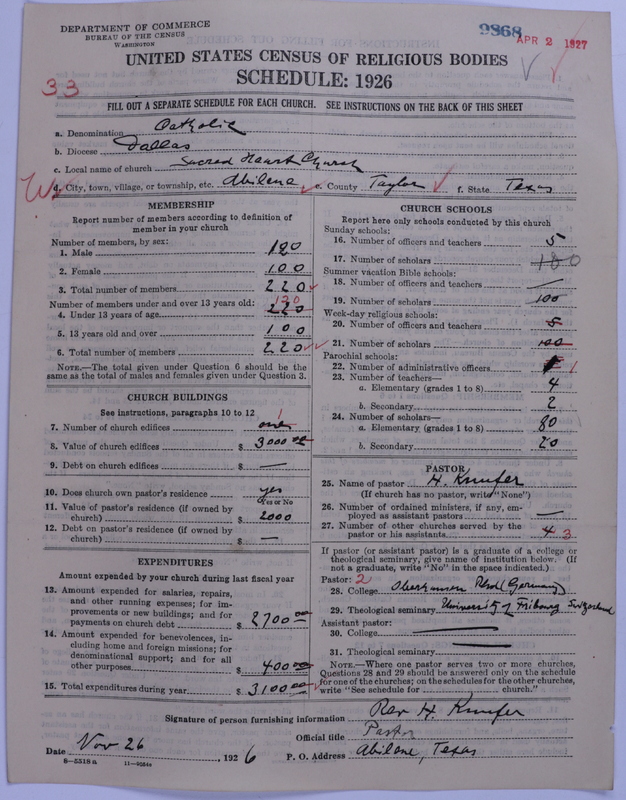 DEPARTMENT OF COMMERCE
BUREAU OF THE CENSUS
WASHINGTON
9868
APR 2 1927
UNITED STATES CENSUS OF RELIGIOUS BODIES
SCHEDULE: 1926
33
FILL OUT A SEPARATE SCHEDULE FOR EACH CHURCH. SEE INSTRUCTIONS ON THE BACK OF THIS SHEET
a. Denomination Catholic
b. Diocese Dallas
c. Local name of church Sacred Heart Church
d. City, town, village, or township, etc. Abilene e. County Taylor f. State Texas
MEMBERSHIP
Report number of members according to definition of
member in your church
Number of members, by sex:
1. Male 120
2. Female 100
3. Total number of members 220
Number of members under and over 13 years old:
120
4. Under 13 years of age 220
5. 13 years old and over 100
6. Total number of members 220
NOTE.—The total given under Question 6 should be
same as the total of males and females given under Question 3.
CHURCH BUILDINGS
See instructions, paragraphs 10 to 12
7. Number of church edifices one 1
8. Value of church edifices $ 3000.00
9. Debt on church edifices $ —
10. Does church own pastor's residence yes
Yes or No
11. Value of pastor's residence (if owned by
church) $ 2000
12. Debt on pastor's residence (if owned by
church) $ —
EXPENDITURES
Amount expended by your church during last fiscal year
13. Amount expended for salaries, repairs,
and other running expenses; for im-
provements or new buildings; and for
payments on church debt $ 2700.00
14. Amount expended for benevolences, in-
cluding home and foreign missions; for
denominational support; and for all
other purposes $ 400.00
15. Total expenditures during year $ 3100.00
CHURCH SCHOOLS
Report here only schools conducted by this church
Sunday schools:
16. Number of officers and teachers 5
17. Number of scholars 100
Summer vacation Bible schools:
18. Number of officers and teachers —
19. Number of scholars 100
Week-day religious schools:
20. Number of officers and teachers 5
21. Number of scholars 100
Parochial schools:
22. Number of administrative officers 1
23. Number of teachers—
a. Elementary (grades 1 to 8) 4
b. Secondary 2
24. Number of scholars—
a. Elementary (grades 1 to 8) 80
b. Secondary 20
PASTOR
25. Name of pastor H. Knufer
(If church has no pastor, write "None")
26. Number of ordained ministers, if any, em-
ployed as assistant pastors —
27. Number of other churches served by the
pastor or his assistants 4 3
If pastor (or assistant pastor) is a graduate of a college or
theological seminary, give name of institution below. (If
not a graduate, write "No" in the space indicated.)
Pastor: 2
28. College (Germany)
29. Theological seminary University of Fribourg Switzerland
Assistant pastor:
30. College —
31. Theological seminary —
NOTE.—Where one pastor serves two or more churches,
Questions 28 and 29 should be answered only on the schedule
for one of the churches; on the schedules for the other churches,
write "See schedule for church."
Signature of person furnishing information Rev H. Knufer
Official title Pastor
Date Nov 26, 1926 P. O. Address Abilene, Texas
8-5518a 11-9254